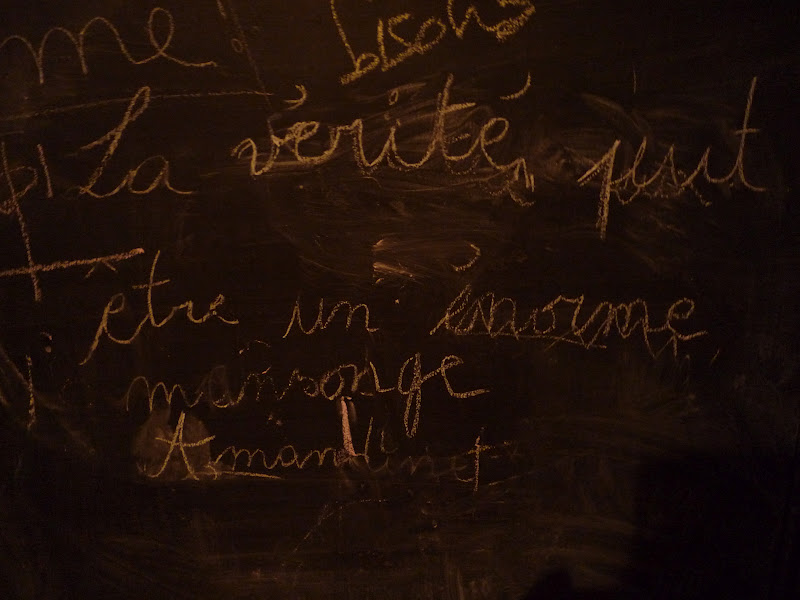 bisons
La vérité peut
être un énorme
mansonge
Amandine